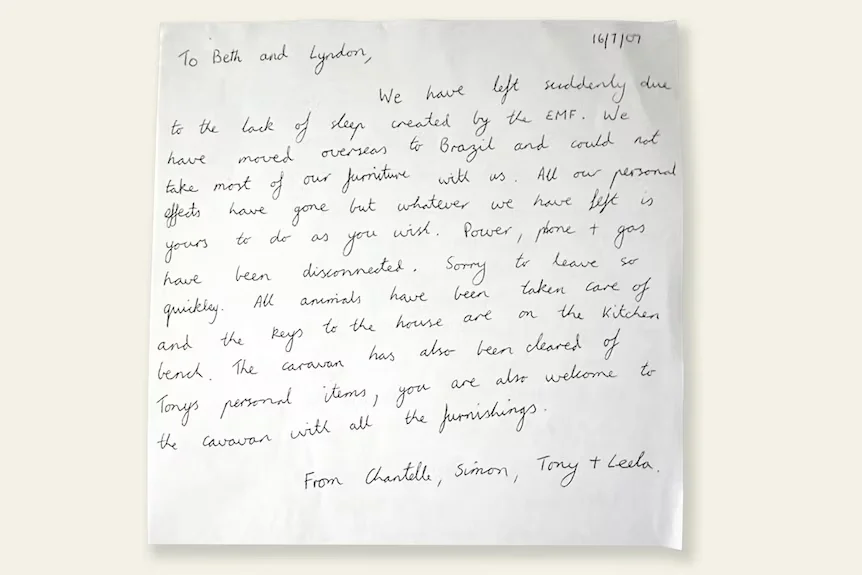 16/7/07
To Beth and Lyndon,
We have left suddenly due
to the lack of sleep created by the EMF. We
have moved overseas to Brazil and could not
take most of our furniture with us. All our personal
effects have gone but whatever we have left is
yours to do as you wish. Power, phone + gas
have been disconnected. Sorry to leave so
quickley. All animals have been taken care of
and the keys to the house are on the Kitchen
bench. The caravan has also been cleared of
Tonys personal items, you are also welcome to
the caravan with all the furnishings.
From Chantelle, Simon, Tony + Leela.